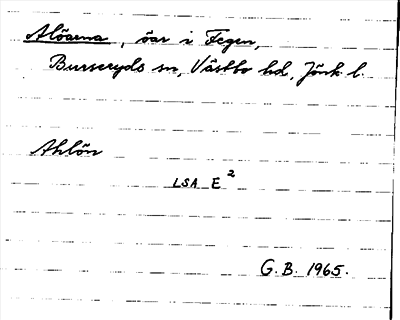 Alöarna, öar i Fegen,
Burseryds sn, Västbo hd, Jönk. l.
Ahlön
LSA E 2
G. B. 1965.